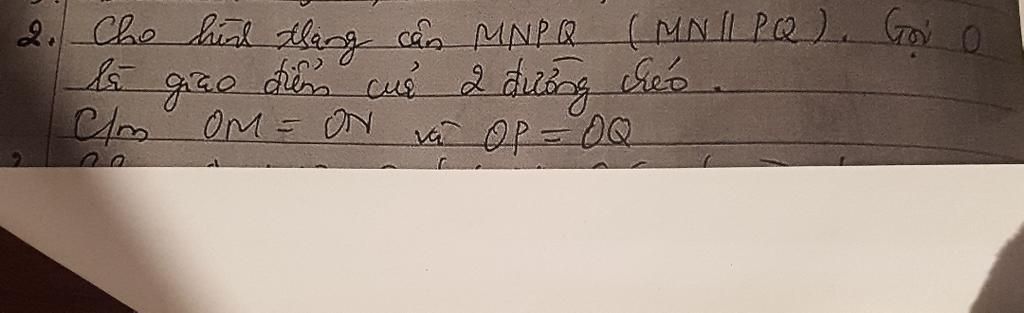 2. Cho hình thang cân MNPQ (MN // PQ). Gọi O
là giao điểm của 2 đường chéo.
C/m OM = ON và OP = OQ